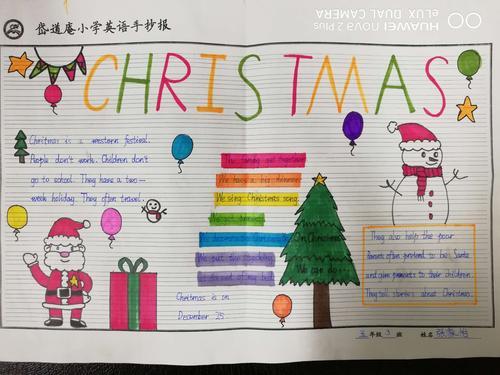 岱道庵小学英语手抄报
HUAWEI nova 2 Plus
eLUX DUAL CAMERA
CHRISTMAS
Christmas is a western festival.
People don't work. Children don't
go to school. They have a two-
week holiday. They often travel.
The family get together
We have a big dinner
We sing Christmas song.
We put two stocking
On Christmas
We can do
Christmas is on
December 25.
They also help the poor
parents often pretend to be Santa
and give presents to their children
They tell stories about Christmas.
五年级 3 班 姓名